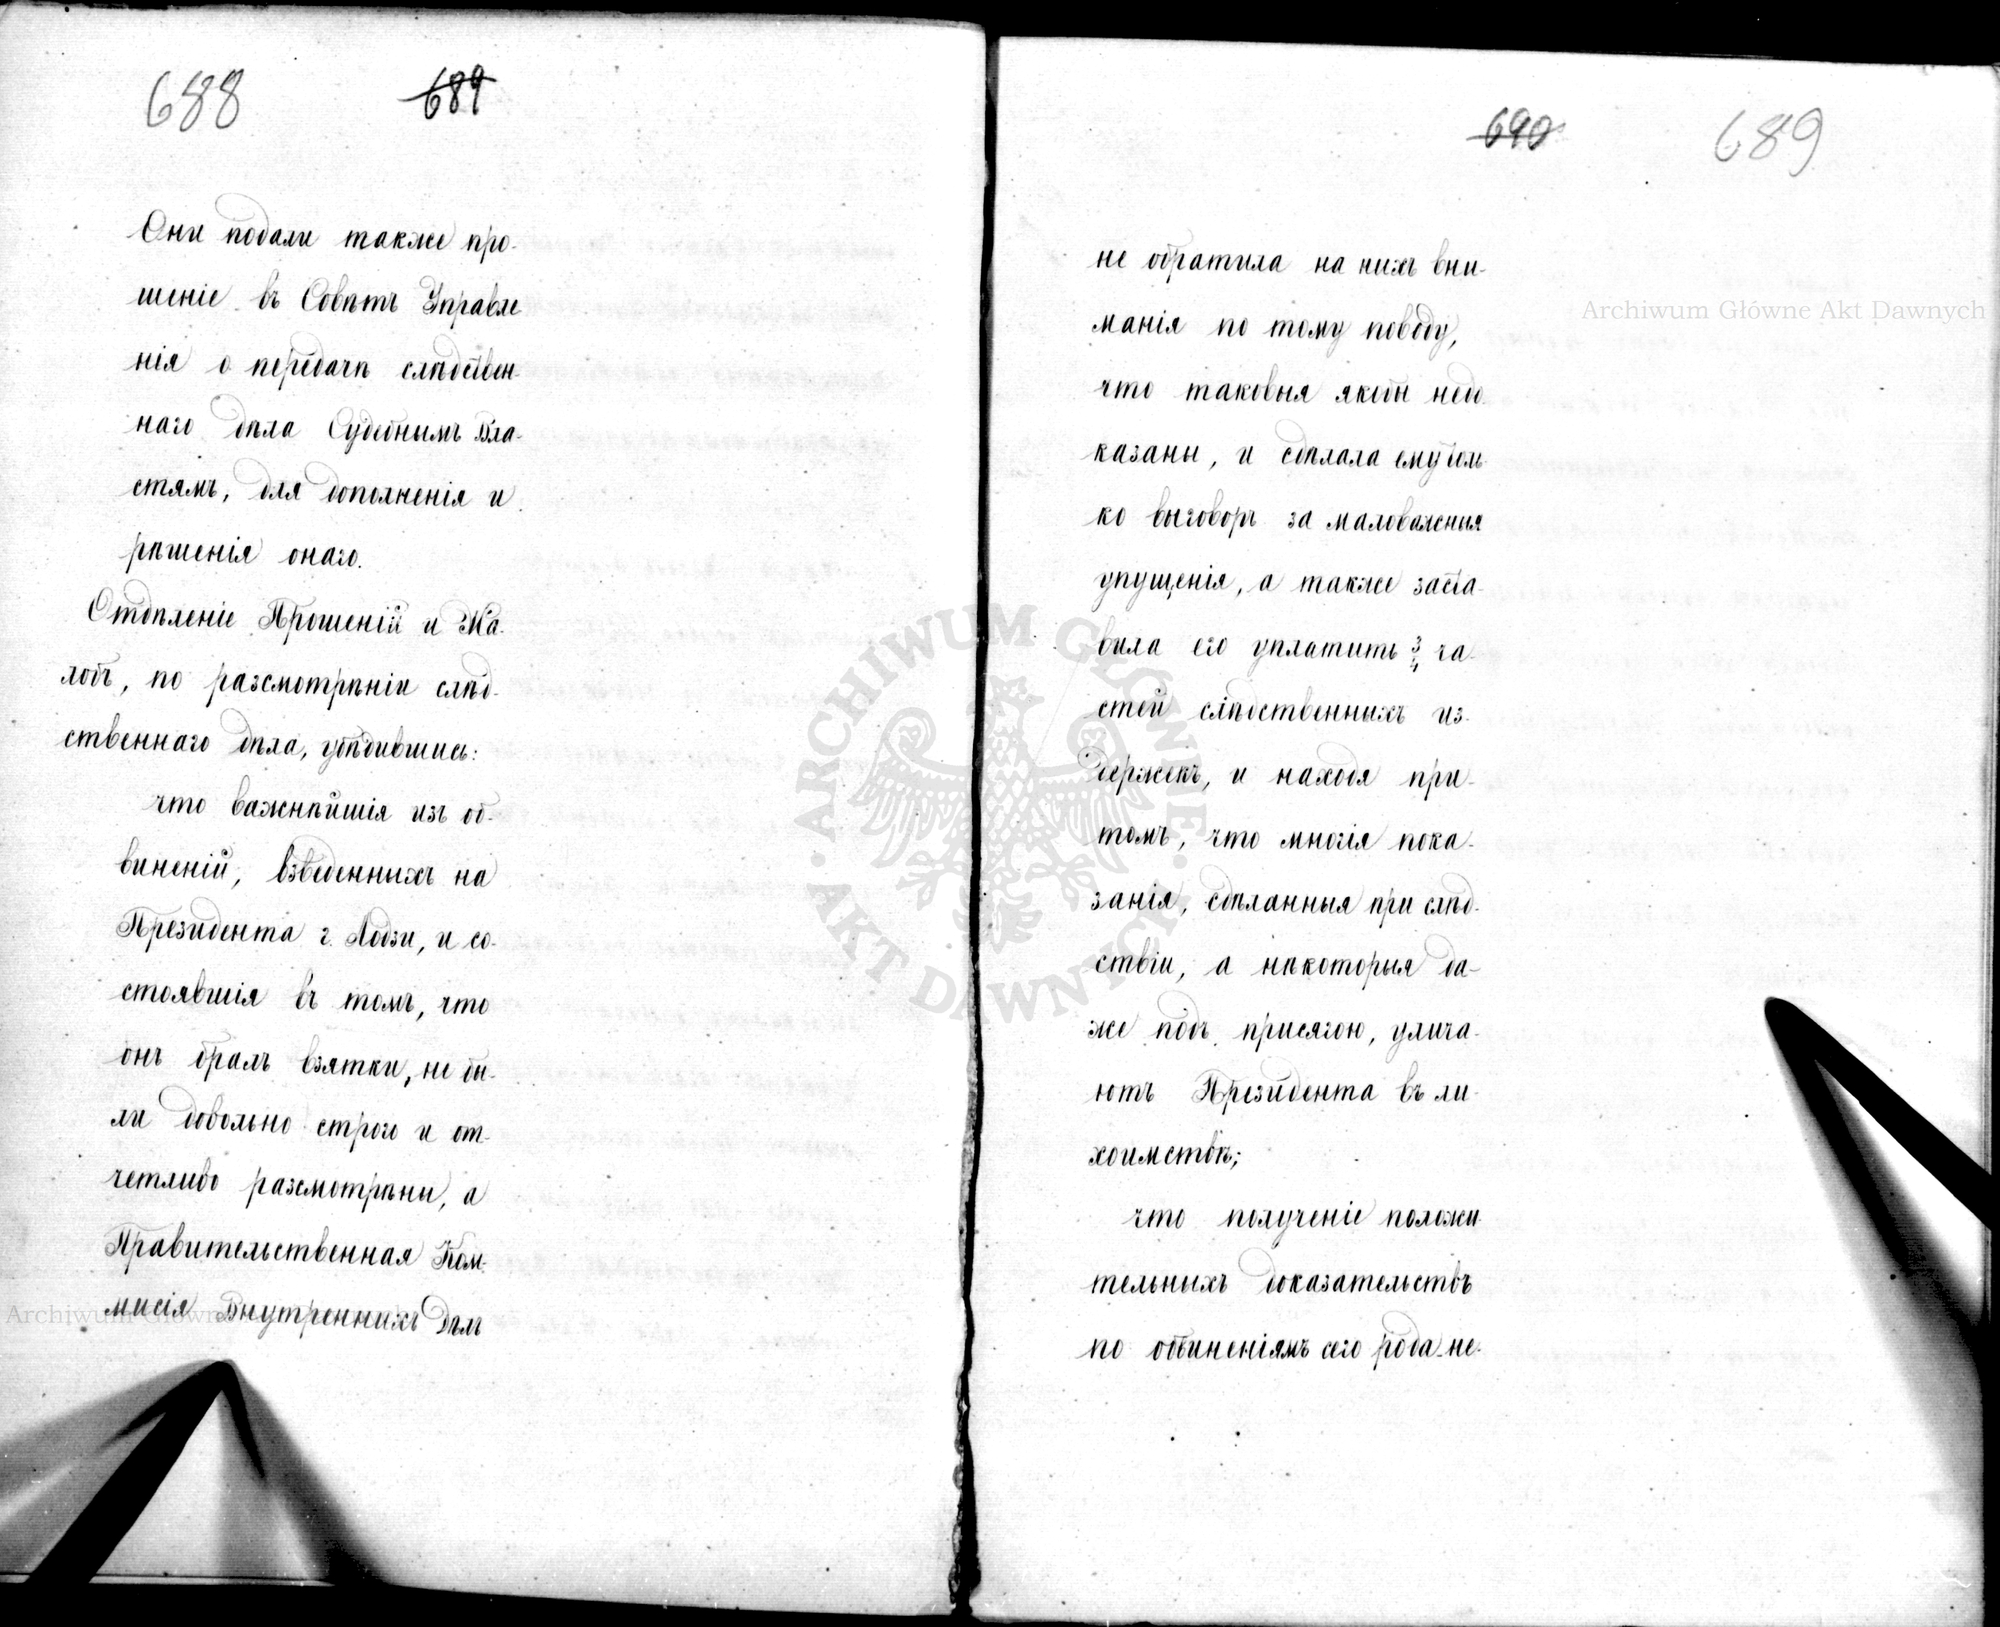 688 689
Они подали также про-
шеніе въ Совѣтъ Управле
нія о передачѣ слѣдствен-
наго дѣла Судебнымъ Вла-
стямъ, для дополненія и
рѣшенія онаго.
Отдѣленіе Прошеній и Жа-
лобъ, по разсмотрѣніи слѣд-
ственнаго дѣла, убѣдившись:
что важнѣйшія изъ об-
виненій, взведенныхъ на
Президента г. Лодзи, и со-
стоявшія въ томъ, что
онъ бралъ взятки, не бы-
ли довольно строго и от-
четливо разсмотрѣны, а
Правительственная Ком-
мисія Внутреннихъ Дѣлъ
690 689
не обратила на нихъ вни-
манія по тому поводу,
что таковыя якобы недо
казаны, и сдѣлала ему толь
ко выговоръ за маловажныя
упущенія, а также заста-
вила его уплатить 3/4 ча-
стей слѣдственныхъ из-
держекъ, и находя при-
томъ, что многія пока-
занія, сдѣланныя при слѣд-
ствіи, а нѣкоторыя да-
же подъ присягою, улича-
ютъ Президента въ ли-
хоимствѣ;
что полученіе положи
тельныхъ доказательствъ
по обвиненіямъ сего рода не-
Archiwum Główne Akt Dawnych
ARCHIWUM GŁÓWNE · AKT DAWNYCH ·
Archiwum Główne